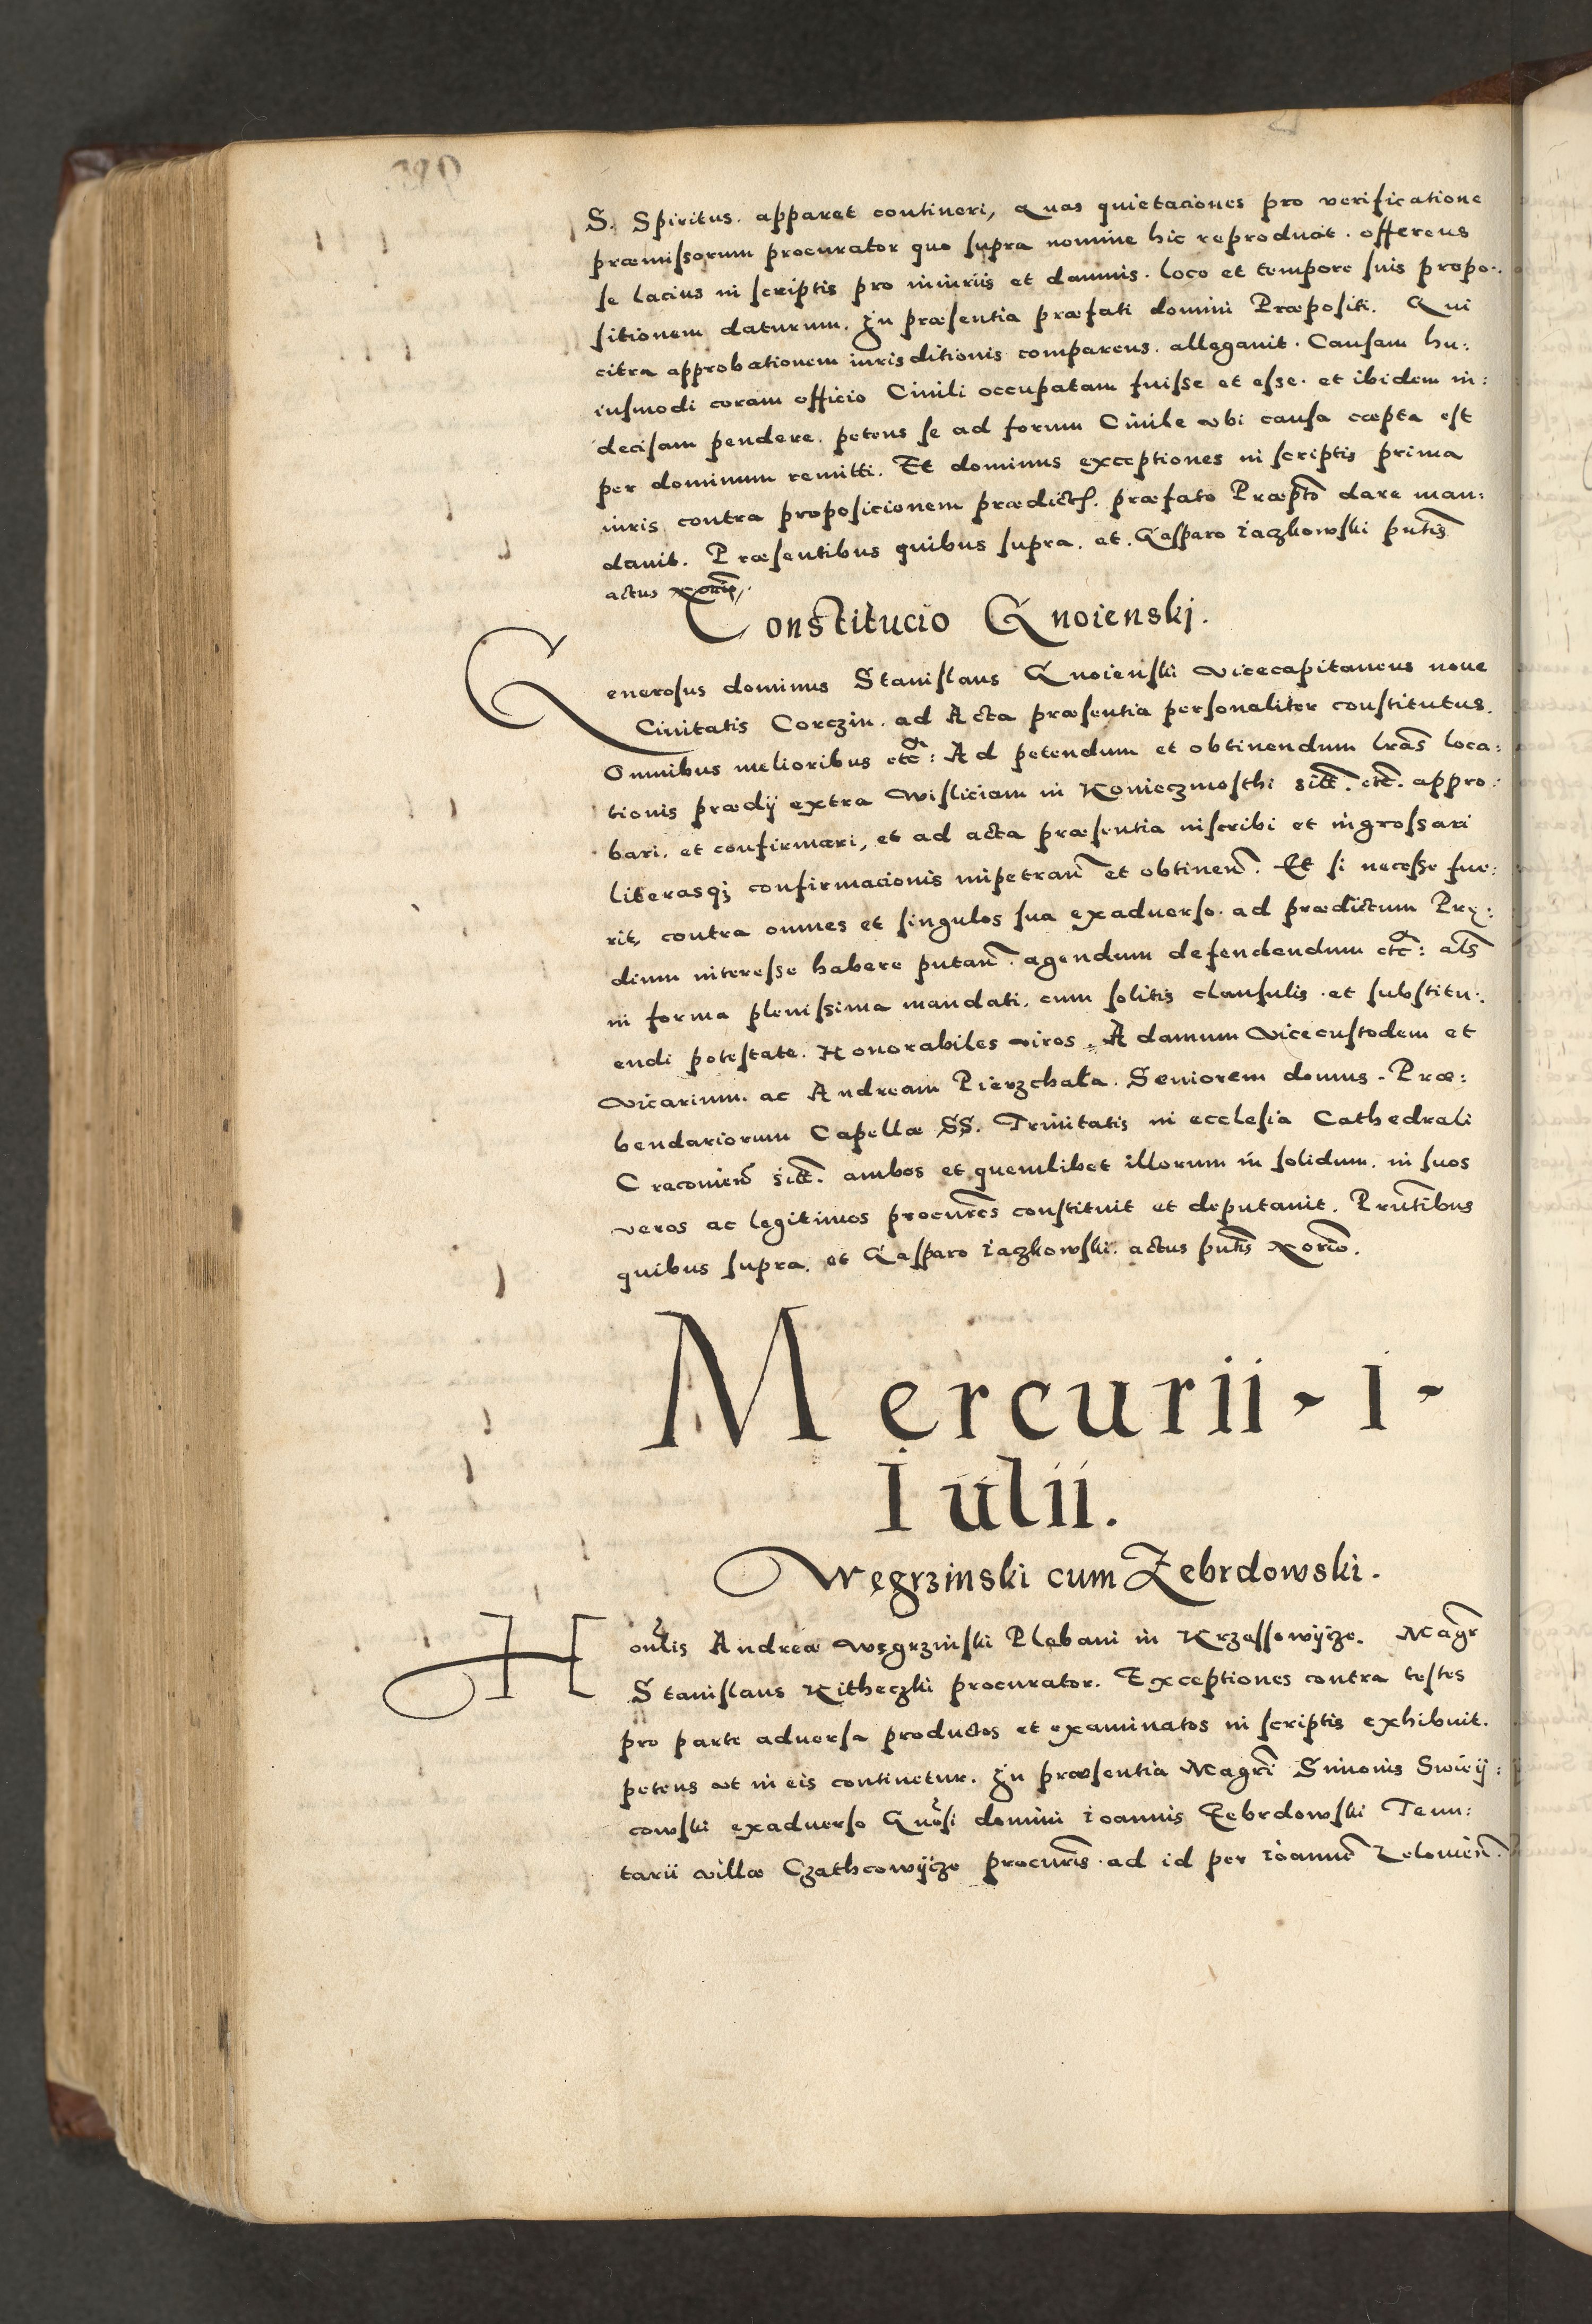 S. Spiritus. apparet contineri, Quas quietaciones pro verificatione
præmissorum procurator quo supra nomine hic reproducit. offerens
se lacius in scriptis pro iniuriis et damnis. loco et tempore suis propo:
sitionem daturum. In præsentia præfati domini Præpositi. Qui
citra approbationem iurisditionis comparens. allegauit. Causam hu:
iusmodi coram officio Ciuili occupatam fuisse et esse. et ibidem in:
decisam pendere. petens se ad forum Ciuile vbi causa cæpta est
per dominum remitti. Et dominus exceptiones in scriptis prima
iuris contra proposicionem prædict. præfato Præpto dare man:
dauit. Præsentibus quibus supra. et. Gasparo iaczkowski pntis
actus
Constitucio Gnoienski.
Generosus dominus Stanislaus Gnoienski vicecapitaneus noue
Ciuitatis Corczin. ad Acta præsentia personaliter constitutus.
Omnibus melioribus etc: Ad petendum et obtinendum lras loca:
tionis prædij extra Wisliciam in Konieczmosthi sitt. etc. appro:
bari. et confirmari, et ad acta præsentia inscribi et ingrossari
literasqz confirmacionis impetran et obtinen. Et si necesse fue:
rit, contra omnes et singulos sua exaduerso. ad prædictum Prę:
dium interesse habere putan. agendum defendendum etc: als
in forma plenissima mandati. cum solitis clausulis. et substitu:
endi potestate. Honorabiles viros. Adamum Vicecustodem et
Vicarium. ac Andream Pierzchała. Seniorem domus. Præ:
bendariorum Capellæ SS. Trinitatis in ecclesia Cathedrali
Cracouien sitt. ambos et quemlibet illorum in solidum. in suos
veros ac legitimos procures constituit et deputauit. Prntibus
quibus supra. et Gasparo iaczkowski. actus pntis
Mercurii - 1 -
Iulii.
Węgrzinski cum Zebrdowski.
Honlis Andreæ Węgrzinski Plebani in Krzessowijcze. Magr
Stanislaus Kitheczki procurator. Exceptiones contra testes
pro parte aduersa productos et examinatos in scriptis exhibuit.
petens vt in eis continetur. In præsentia Magri Simonis Swiey:
cowski exaduerso Gnosi domini ioannis Zebrdowski Tenu:
tarii villæ Czathcowijcze procuris. ad id per ioannem Zelouien.